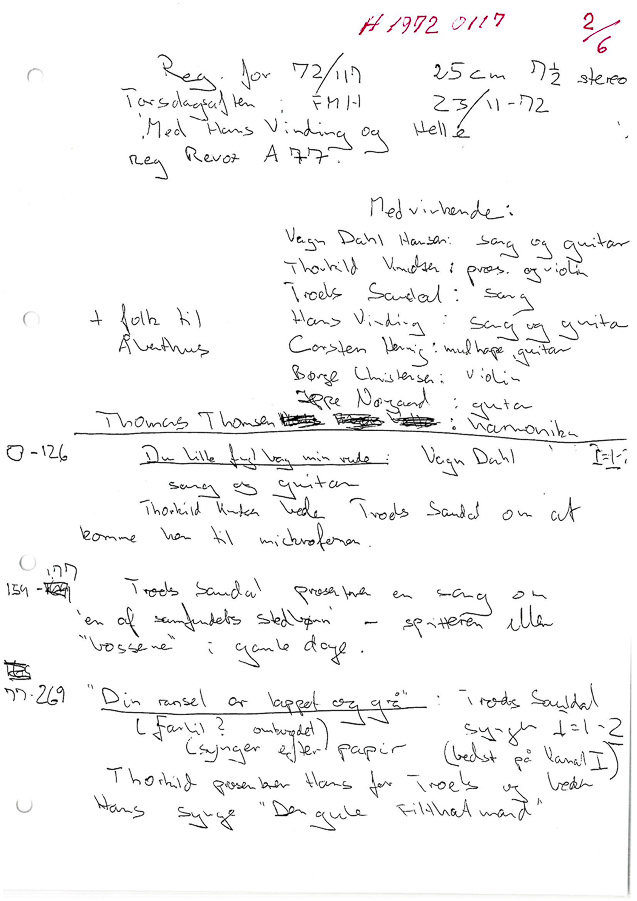 H 1972 0117 2/6
Reg. for 72/117 25 cm 7½ stereo
Torsdagsaften : FMH 23/11-72
Med Hans Vinding og Helle
reg Revox A 77.
Medvirkende:
Vagn Dahl Hansen: sang og guitar
Thorkild Knudsen: præs. og violin
Troels Sandal: sang
+ folk til Hans Vinding: sang og guita
Åventhus Corsten Hennig: mulhape, guitar
Børge Christensen: violin
Jeppe Nørgaard: guitar
Thomas Thomsen : harmonika
0-126 Du lille fugl bag min rude: Vagn Dahl I=1-
sang og guitar
Thorkild Knudsen beder Troels Sandal om at
komme hen til mickrofonen.
177
159- Troels Sandal præsenterer en sang om
"en af samfundets stedbørn" - spritteren eller
"bossene" i gamle dage.
77-269 "Din ransel er lappet og grå": Troels Sandal
(Fartil? ombygdet) synger I=1-2
(synger efter papir (bedst på kanal I)
Thorkild præsenterer Hans for Troels og beder
Hans synge "Den gule Filthat mand"